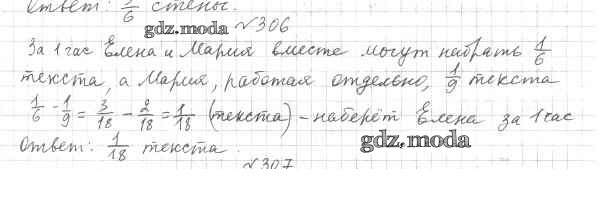 Ответ: 1/6 стены.
gdz.moda №306
За 1 час Елена и Мария вместе могут набрать 1/6
текста, а Мария, работая отдельно, 1/9 текста
1/6 - 1/9 = 3/18 - 2/18 = 1/18 (текста) - наберёт Елена за 1 час
Ответ: 1/18 текста.
gdz.moda
№307